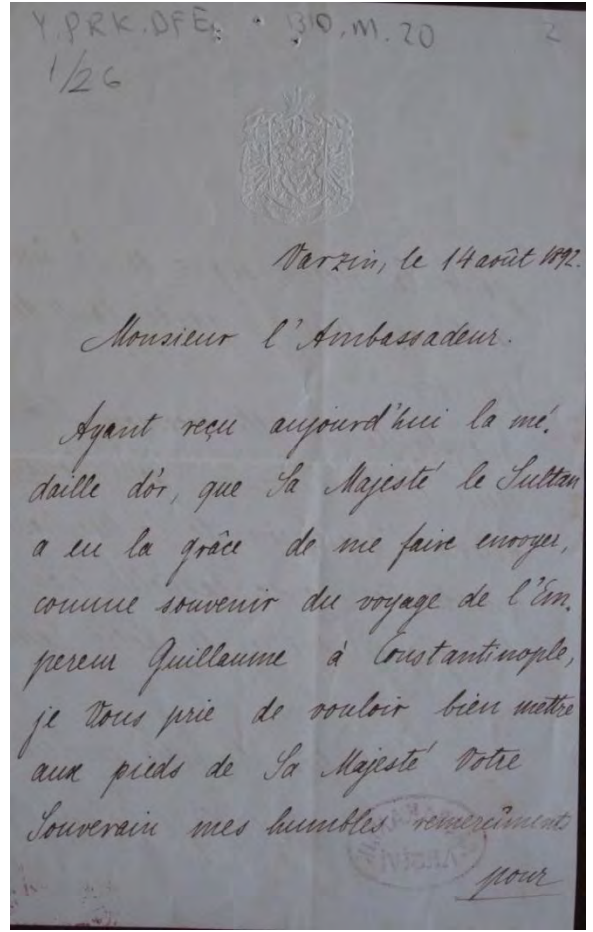 Y.PRK.DFE.
1/26
2
Varzin, le 14 août 1892.
Monsieur l'Ambassadeur.
Ayant reçu aujourd'hui la mé-
daille d'or, que Sa Majesté le Sultan
a eu la grâce de me faire envoyer,
comme souvenir du voyage de l'Em-
pereur Guillaume à Constantinople,
je Vous prie de vouloir bien mettre
aux pieds de Sa Majesté Votre
Souverain mes humbles remercîments
pour